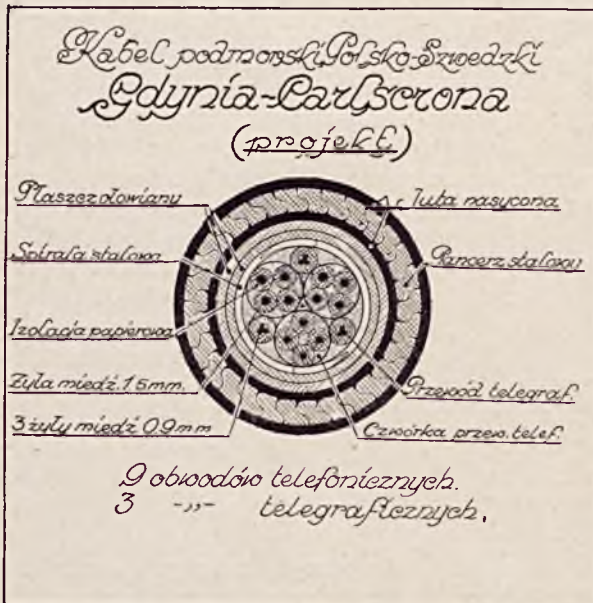 Kabel podmorski Polsko-Szwedzki
Gdynia-Carlscrona
(projekt)
Płaszcz ołowiany
Spirala stalowa
Izolacja papierowa
Żyła miedź. 1.5 mm.
3 żyły miedź 0.9 mm
Juta nasycona
Pancerz stalowy
Przewód telegraf.
Czwórka przew. telef.
9 obwodów telefonicznych.
3 -„- telegraficznych.